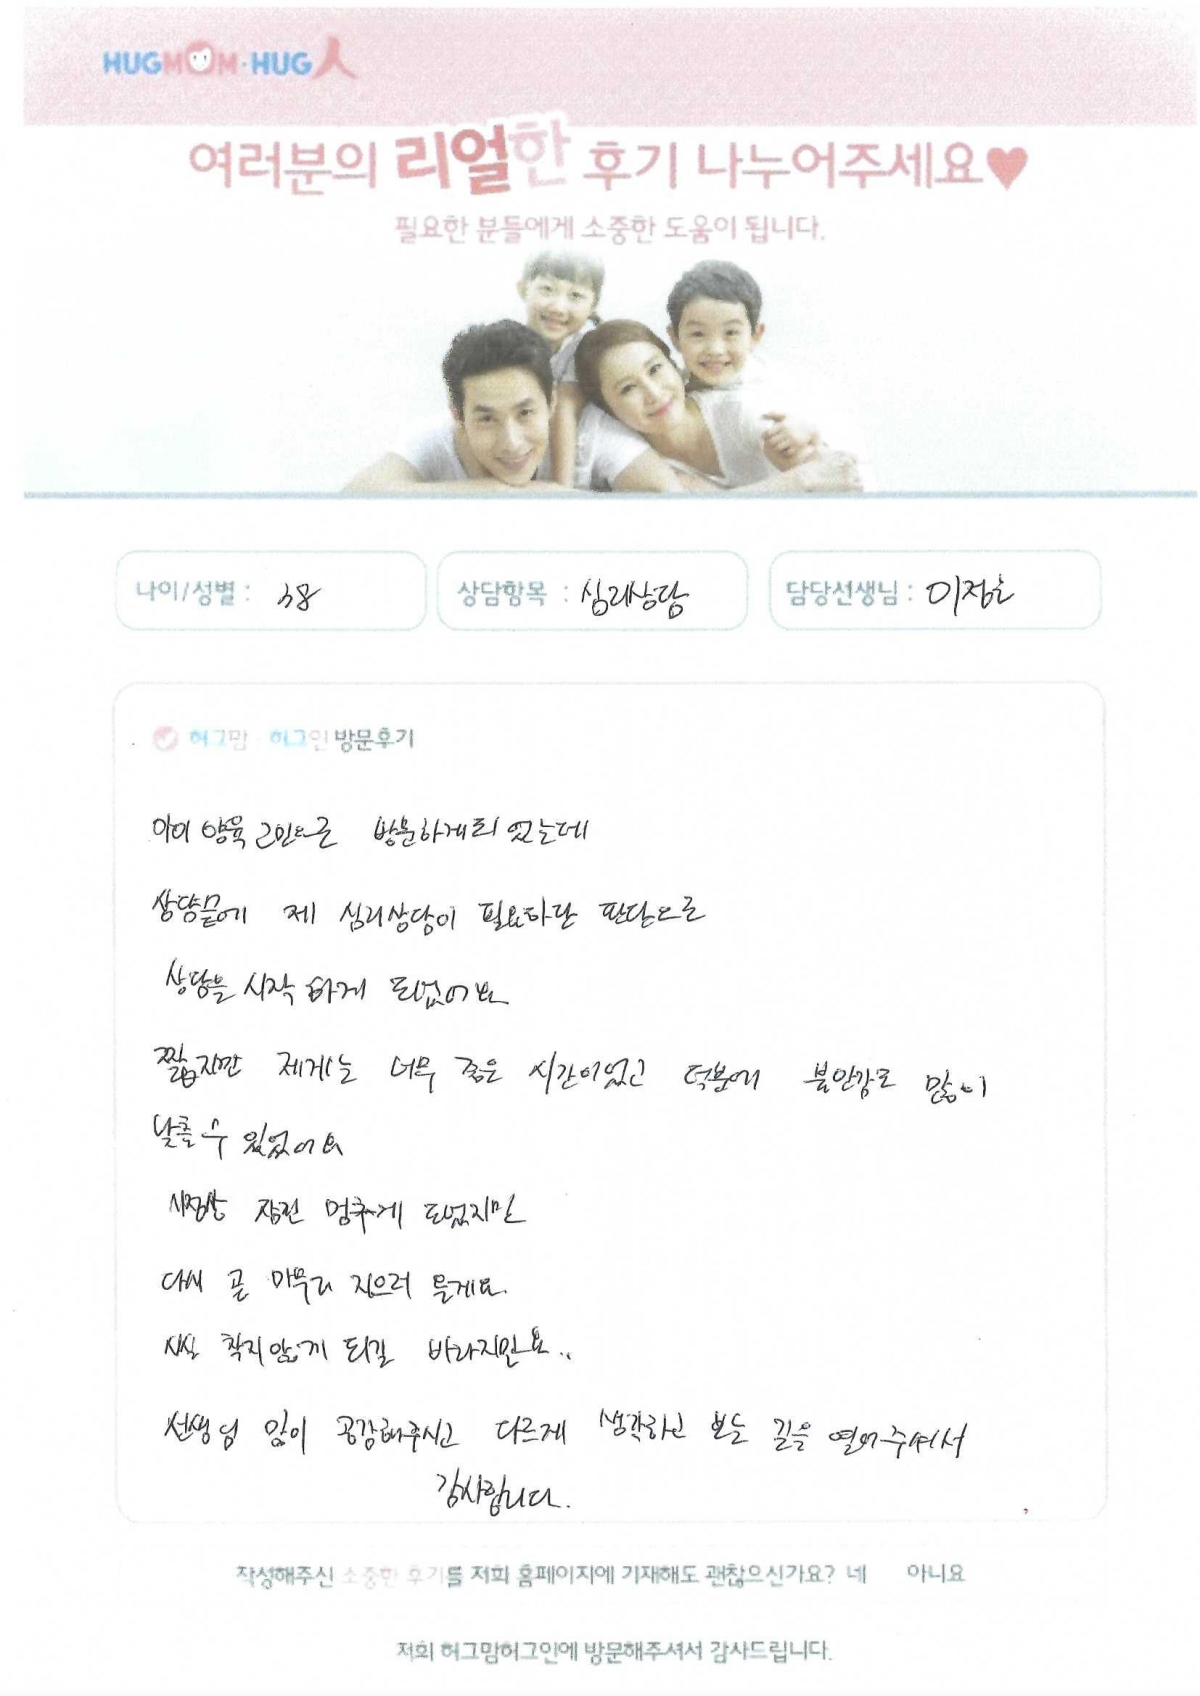 HUGMOM·HUG人
여러분의 리얼한 후기 나누어주세요♥
필요한 분들에게 소중한 도움이 됩니다.
나이/성별 : 38
상담항목 : 심리상담
담당선생님 : 이정호
허그맘·허그인 방문후기
아이 양육 고민으로 방문하게 되었는데
상담끝에 제 심리상담이 필요하단 판단으로
상담을 시작하게 되었어요
짧지만 제게는 너무 좋은 시간이었고 덕분에 불안감도 많이
낮출 수 있었어요
사정상 잠깐 멈추게 되었지만
다시 곧 마무리 지으러 올게요.
사실 찾지않게 되길 바라지만요..
선생님 많이 공감해주시고 다르게 생각하고 보는 길을 열어주셔서
감사합니다.
작성해주신 소중한 후기를 저희 홈페이지에 기재해도 괜찮으신가요? 네 아니요
저희 허그맘허그인에 방문해주셔서 감사드립니다.